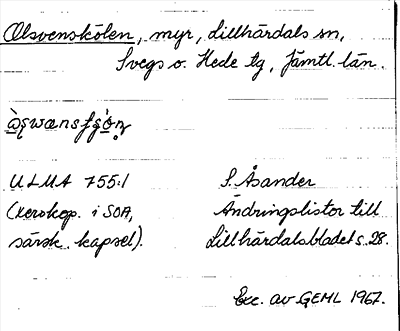 Olsvenskölen, myr, Lillhärdals sn,
Svegs o. Hede tg, Jämtl. län.
ULMA 755:1 S. Åsander
(xerokop. i SOA, Ändringslistor till
särsk. kapsel). Lillhärdalsbladet s. 28.
Exc. av GEML 1967.